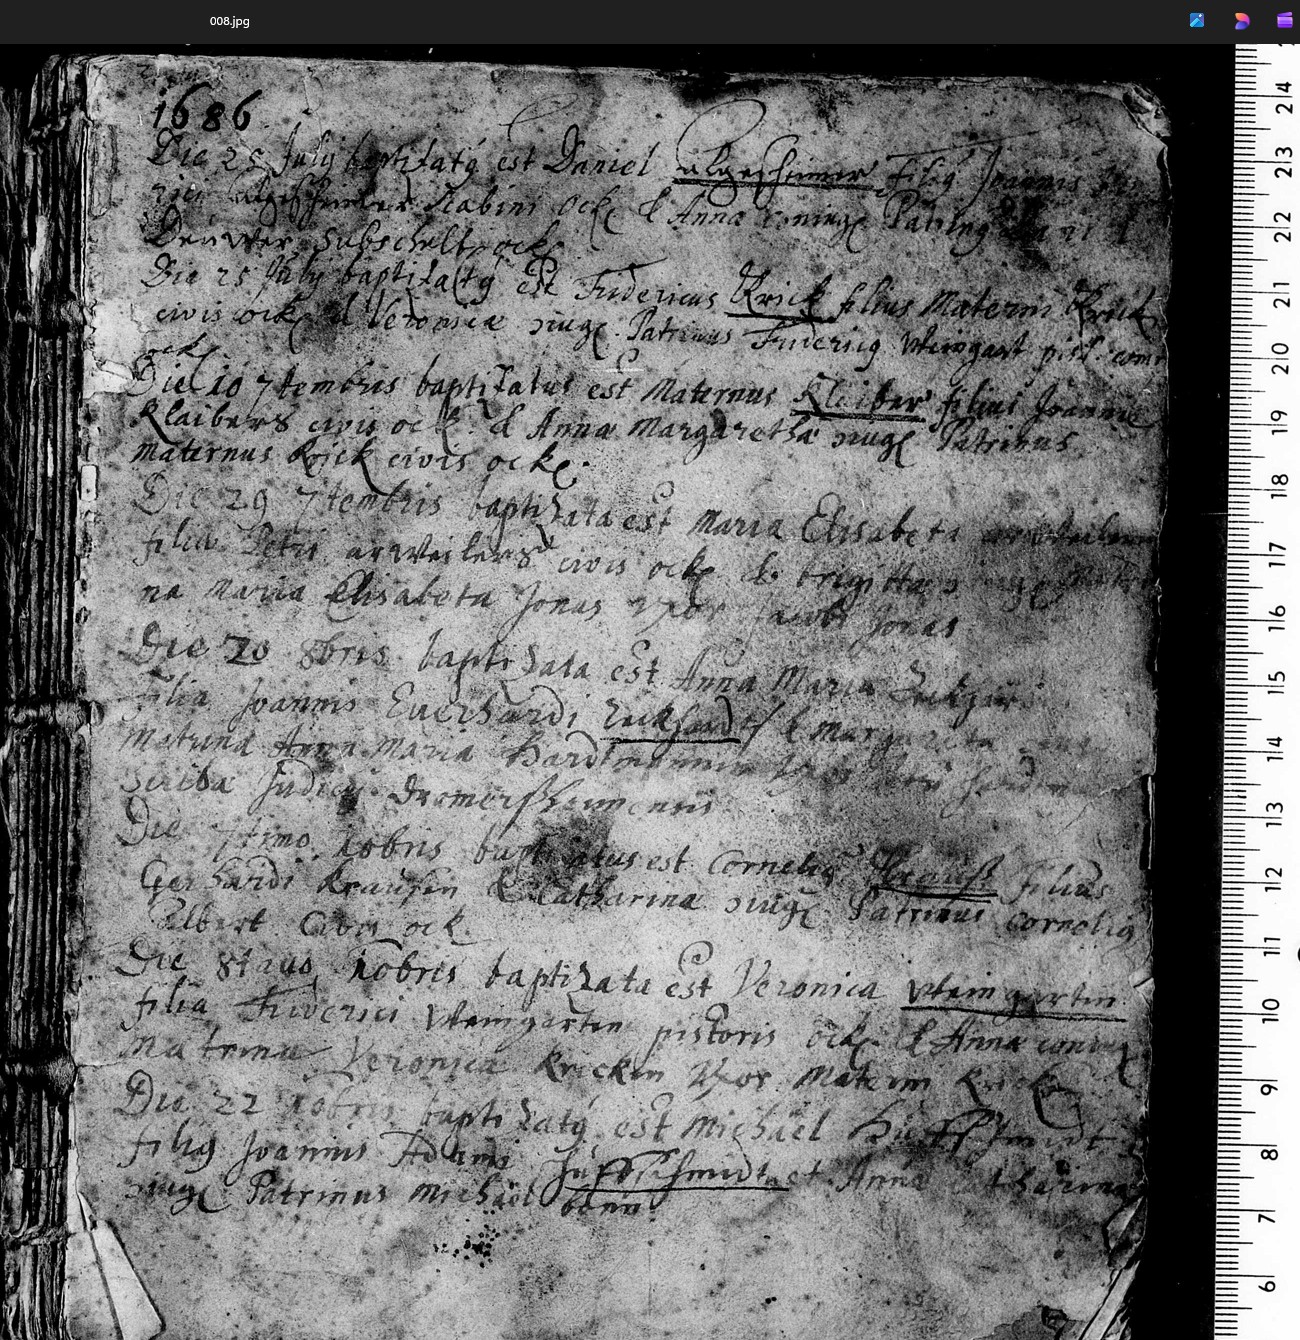 008.jpg
1686
Die 25 July baptizatus est Daniel Algesheimer Filius Joannis
Algesheimer Scabini ock. & Anna coniug. Patrinus
Denvver Subschultz ock.
Die 25 July baptizatus est Fridericus Krick filius Materni Krick
civis ock. & Veronicæ coniug. Patrinus Fridericus Weingart pist.
ock.
Die 10 7tembris baptizatus est Maternus Klaiber filius Joannis
Klaibers civis ock. & Annæ Margarethæ coniug. Patrinus
Maternus Krick civis ock.
Die 29 7tembris baptizata est Maria Elisabeta arweilers
filia Petri arweilers civis ock. & brigittæ coniug. Matri
na Maria Elisabeta Jonas Uxor Jacobi Jonas
Die 20 8bris baptizata est Anna Maria
filia Joannis Everhardi Eckhardt & Margareta
Matrina Anna Maria Hardtmannin Uxor
Scriba Judicij Dromersheimensis
Die 7timo Xobris baptizatus est Cornelius Krauss filius
Gerhardi Krausen & Catharinæ coniug. Patrinus Cornelius
Elbert Civis ock.
Die 8tavo Xobris baptizata est Veronica Weingartin
filia Friderici Weingarten pistoris ock. & Anna coniug.
Matrina Veronica Krickin Uxor Materni Krick
Die 22 Xobris baptizatus est Michael Huffschmidt
filius Joannis Adami Huffschmidt et Anna Catharina
coniug. Patrinus Michael bonn.
24
23
22
21
20
19
18
17
16
15
14
13
12
11
10
9
8
7
6